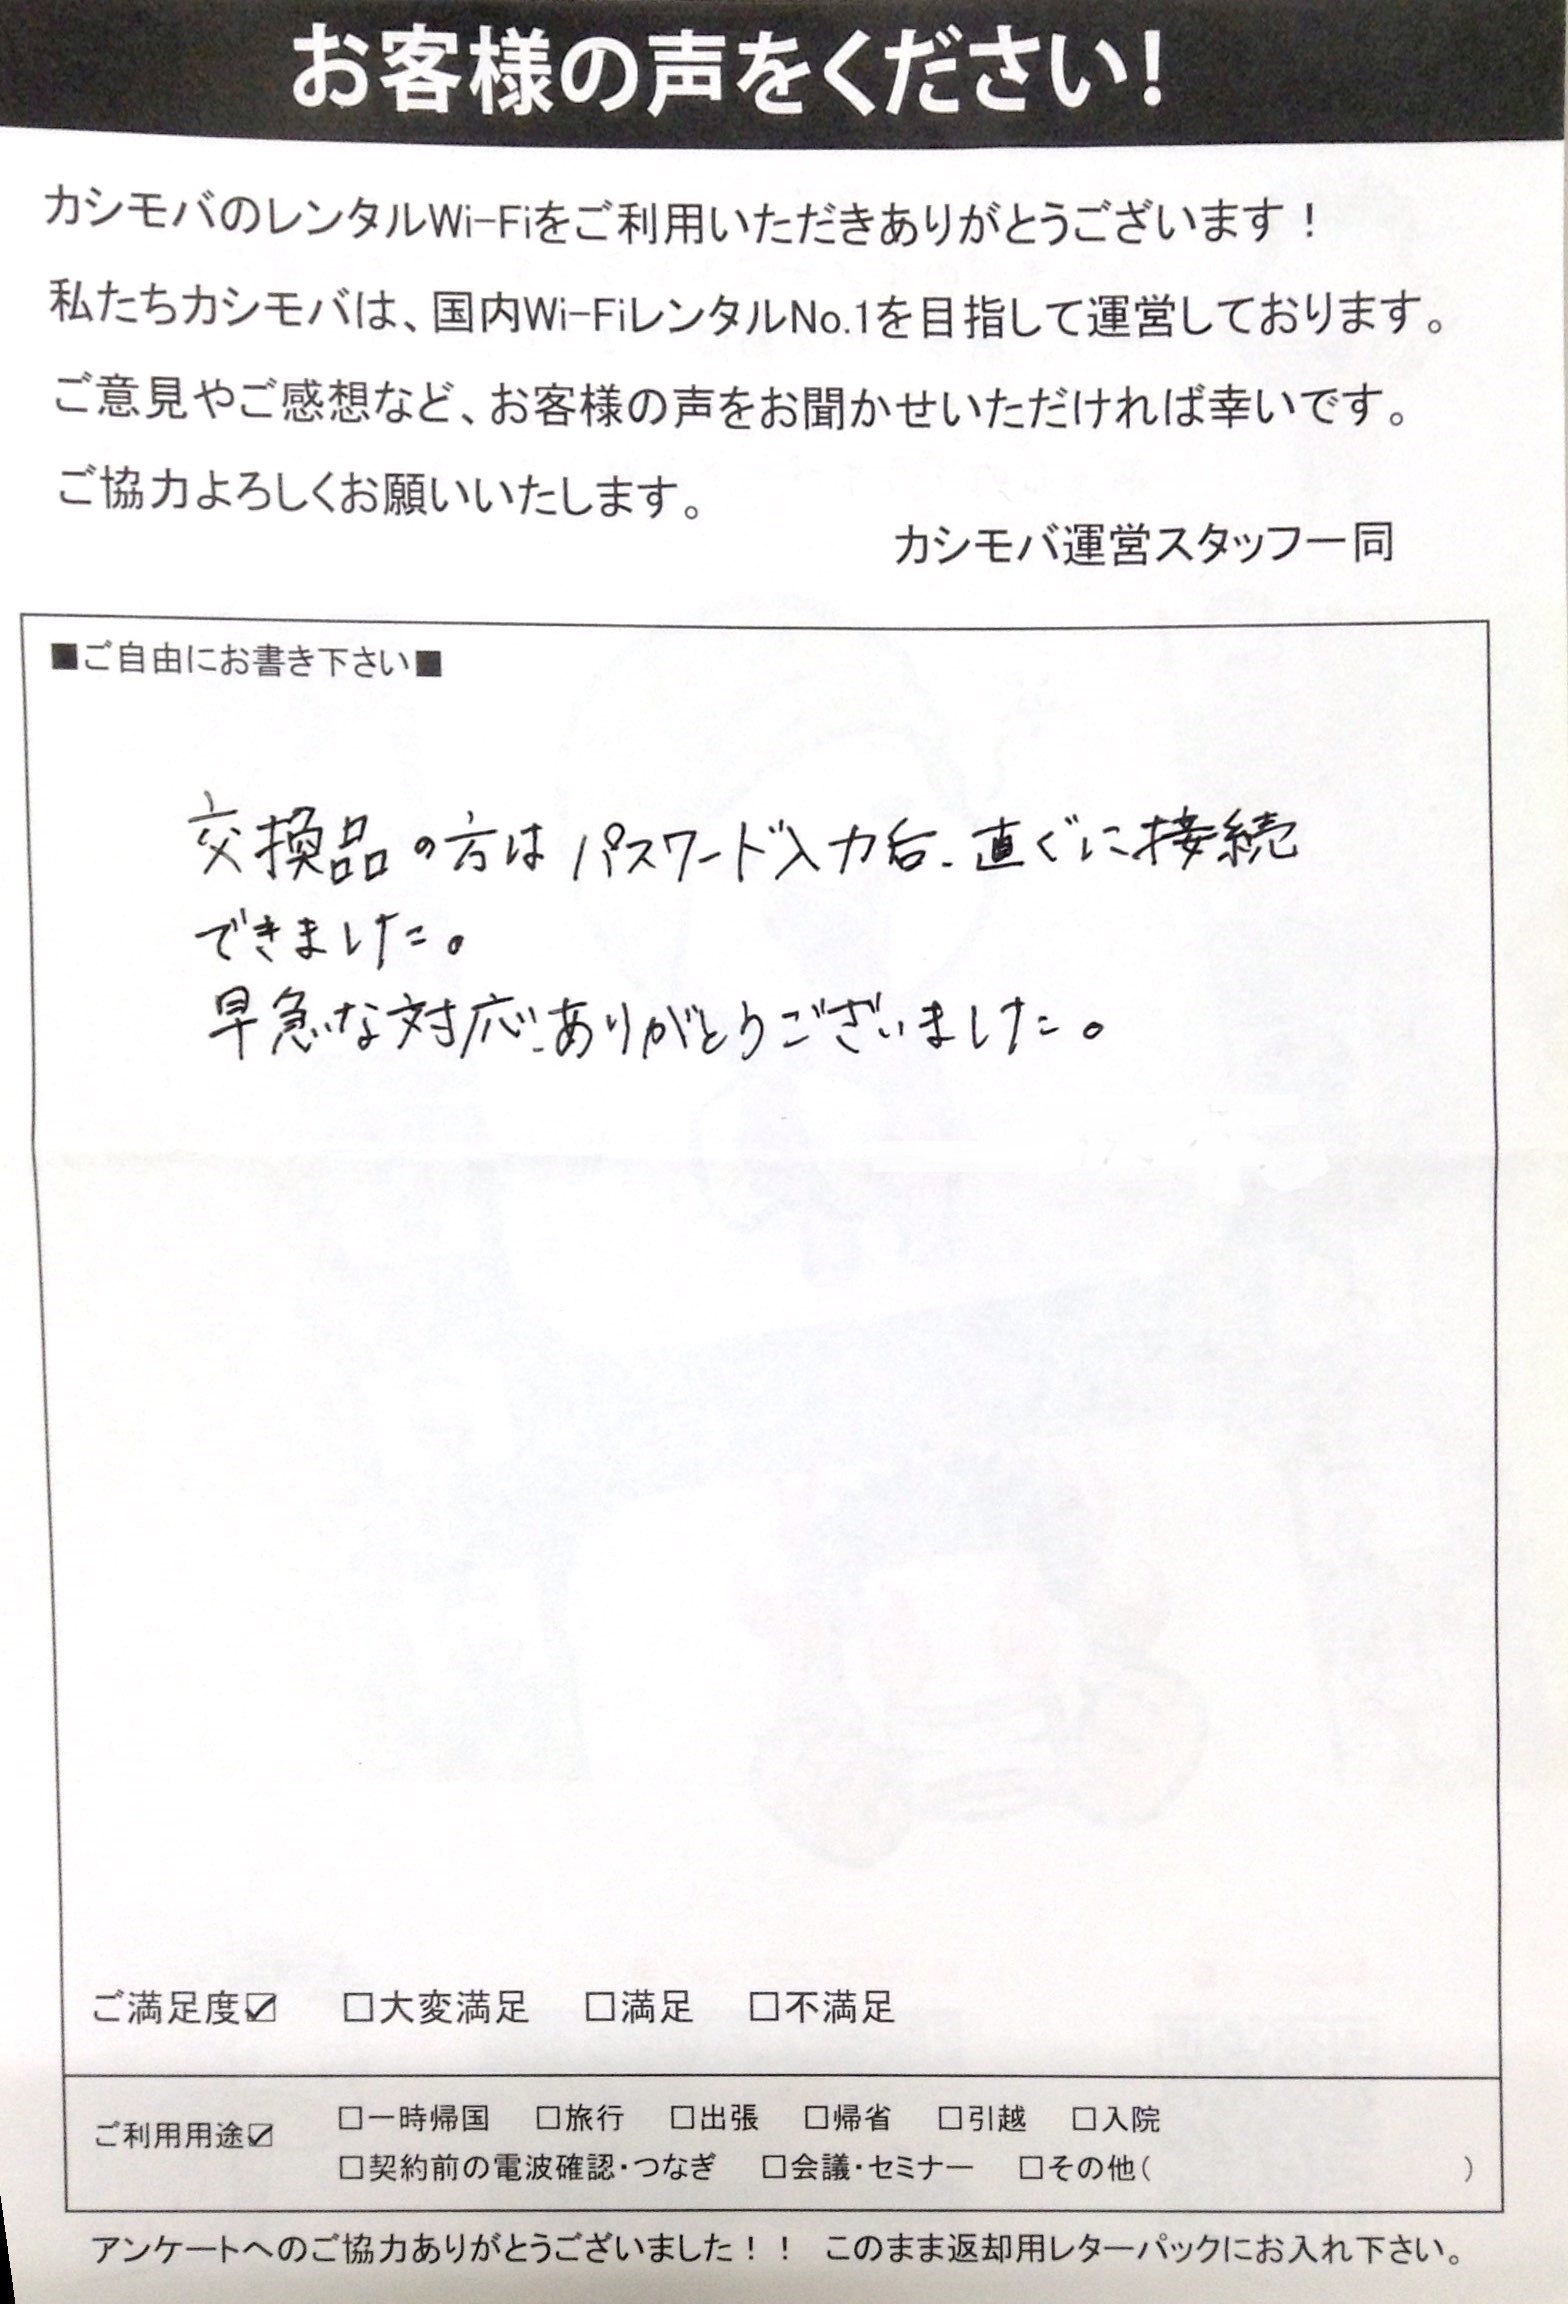 お客様の声をください!
カシモバのレンタルWi-Fiをご利用いただきありがとうございます！
私たちカシモバは、国内Wi-FiレンタルNo.1を目指して運営しております。
ご意見やご感想など、お客様の声をお聞かせいただければ幸いです。
ご協力よろしくお願いいたします。
カシモバ運営スタッフ一同
■ご自由にお書き下さい■
交換品の方はパスワード入力后、直ぐに接続
できました。
早急な対応、ありがとうございました。
ご満足度☑ □大変満足 □満足 □不満足
ご利用用途☑ □一時帰国 □旅行 □出張 □帰省 □引越 □入院
□契約前の電波確認・つなぎ □会議・セミナー □その他( )
アンケートへのご協力ありがとうございました！！ このまま返却用レターパックにお入れ下さい。